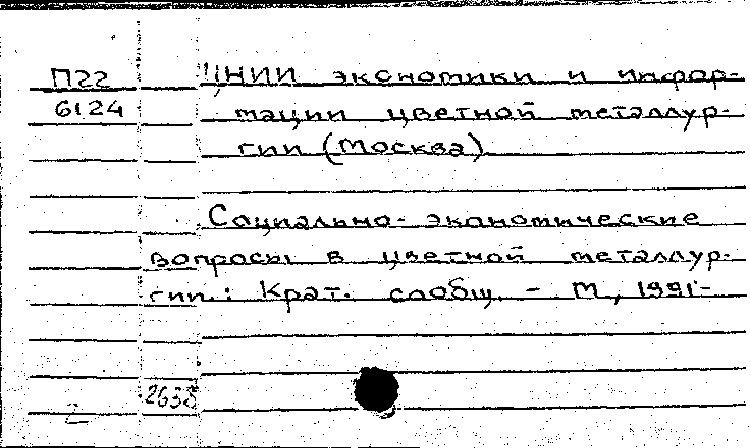 П22 ЦНИИ экономики и инфор-
6124 мации цветной металлур-
гии (Москва)
Социально-экономические
вопросы в цветной металлур-
гии: Крат. сообщ. - М., 1991-
2638